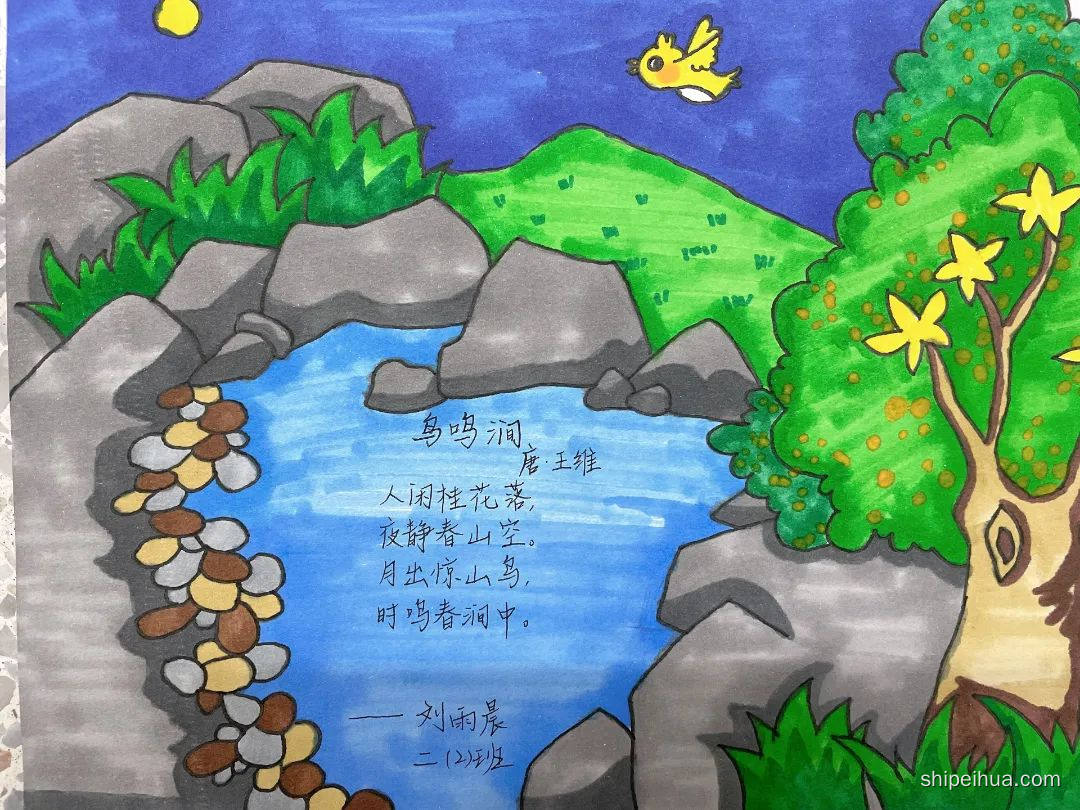 鸟鸣涧
唐·王维
人闲桂花落,
夜静春山空。
月出惊山鸟,
时鸣春涧中。
—— 刘雨晨
二(2)班
shipeihua.com